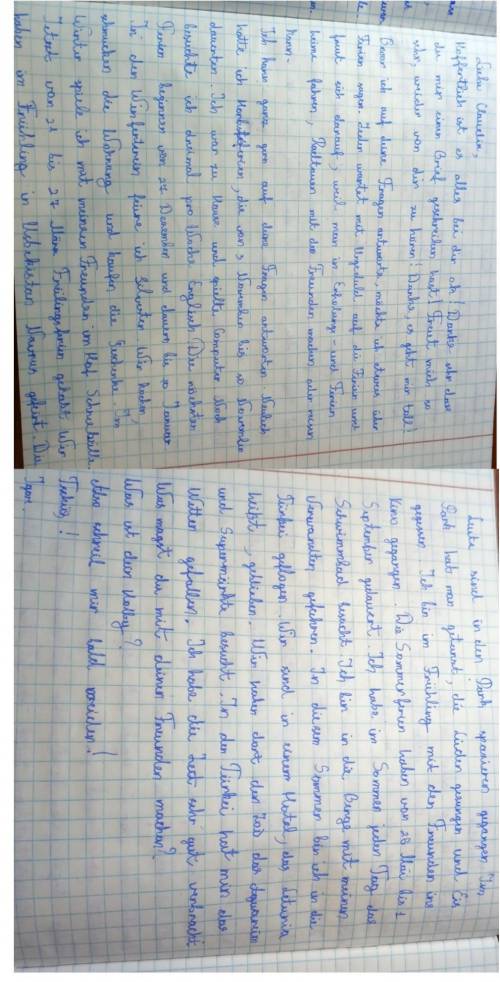 Liebe Claudia,
Hoffentlich ist es alles bei dir ok! Danke
du mir einen Brief geschrieben hast! Freut mich, so
sehr, wieder von dir zu hören! Danke, es geht mir toll!
Bevor ich auf deine Fragen antworte, möchte ich etwas über
Ferien sagen. Jeder wartet mit Ungeduld auf die Ferien und
freut sich darauf, weil man in Erholungs- und Ferien
heime fahren, Radtouren mit den Freunden machen, oder reisen
kann.
Ich kann ganz gern auf deine Fragen antworten. Neulich
hatte ich Herbstferien, die von 3 November bis 10 November
dauerten. Ich war zu Hause und spielte Computer. Noch
besuchte ich dreimal pro Woche Englisch. Die nächsten
Ferien beginnen von 27 Dezember und dauern bis 10 Januar
In den Winterferien, feiere ich Silvester. Wir backen,
schmücken die Wohnung und kaufen die Geschenke. Im
Winter spiele ich mit meinen Freunden im Hof Schneebälle.
Jetzt von 21 bis 27 März Frühlingsferien gehabt. Wir
haben im Frühling in Usbekistan Navrus gefeiert. Die
Leute sind in den Park spazieren gegangen. Im
Park hat man getanzt, die Lieder gesungen und Eis
gegessen. Ich bin im Frühling mit den Freunden ins
Kino gegangen. Die Sommerferien haben von 26 Mai bis 1
September gedauert. Ich habe im Sommer jeden Tag das
Schwimmbad besucht. Ich bin in die Berge mit meinen
Verwandten gefahren. In diesem Sommer bin ich in die
Türkei geflogen. Wir sind in einem Hotel, das
heißt, geblieben. Wir haben dort den Zoo das Aquarium
und Supermärkte besucht. In der Türkei hat mir das
Wetter gefallen. Ich habe die Zeit sehr gut verbracht
Was magst du mit deinen Freunden machen?
Was ist dein Hobby?
Also schreib mir bald wieder!
Tschüs!
Igor.